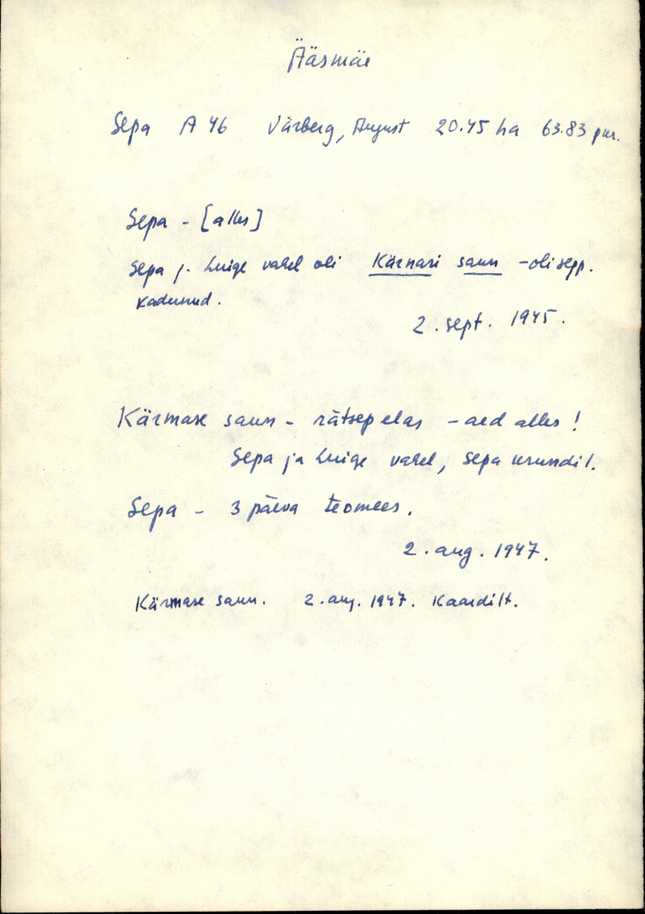 Ääsmäe
Sepa A 46 Värberg, August 20.45 ha 63.83 pur.
Sepa - [alles]
Sepa j. Luige vahel oli Kärnari saun - oli sepp.
Kadunud.
2. sept. 1945.
Kärmase saun - rätsep elas - aed alles!
Sepa ja Luige vahel, Sepa krundil.
Sepa - 3 päeva teomees.
2. aug. 1947.
Kärmase saun. 2. aug. 1947. Kaardilt.